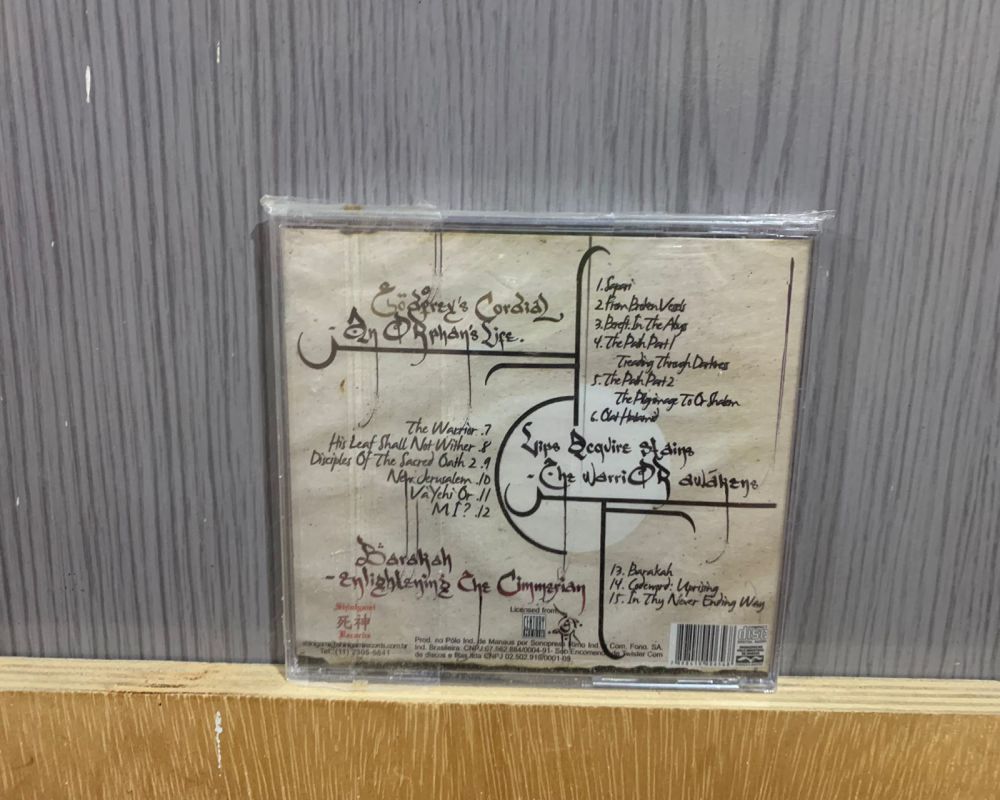 Godfrey's Cordial
- An ORphan's Life.
1. Sapari
2. From Broken Vessels
3. Bereft In The Abyss
4. The Path Part 1
Treading Through Darkness
5. The Path Part 2
The Pilgrimage To Or Shalem
6. Olat Ha'tamid
The Warrior .7
His Leaf Shall Not Wither .8
Disciples Of The Sacred Oath 2 .9
New Jerusalem .10
Vayehi Or .11
M I ? .12
Lips Acquire Stains
- The WarriOR awakens
Barakah
- Enlightening The Cimmerian
13. Barakah
14. Codeword: Uprising
15. In Thy Never Ending Way
Shinigami
死神
Records
shinigami@shinigamirecords.com.br
Licensed from
CENTURY
MEDIA
Prod. no Pólo Ind. de Manaus por Sonopress Rimo Ind. Com. Fono. SA.
Ind. Brasileira.
de discos e fitas ltda
disc